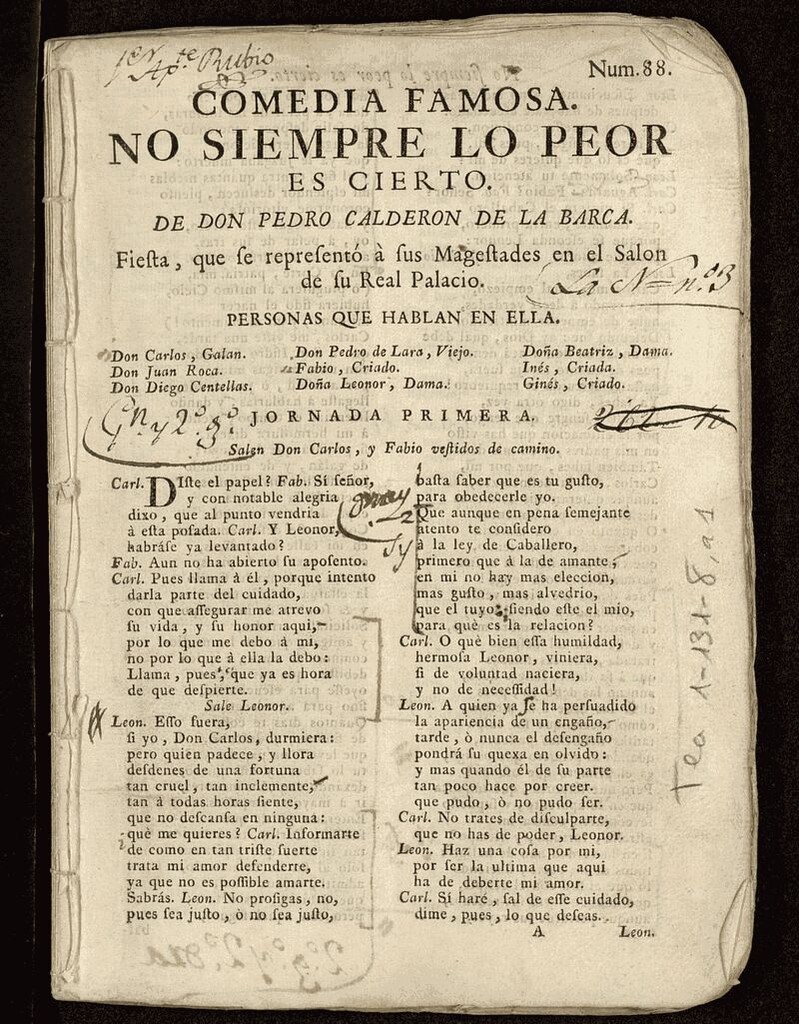 1.er Ap.te Rubio
Num. 88.
COMEDIA FAMOSA.
NO SIEMPRE LO PEOR
ES CIERTO.
DE DON PEDRO CALDERON DE LA BARCA.
Fieſta, que ſe repreſentó à ſus Mageſtades en el Salon
de ſu Real Palacio.
La N= n.º 3
PERSONAS QUE HABLAN EN ELLA.
Don Carlos, Galan.
Don Juan Roca.
Don Diego Centellas.
Don Pedro de Lara, Viejo.
Fabio, Criado.
Doña Leonor, Dama.
Doña Beatriz, Dama.
Inés, Criada.
Ginés, Criado.
JORNADA PRIMERA.
Salen Don Carlos, y Fabio veſtidos de camino.
Carl. DIſte el papel? Fab. Sí ſeñor,
y con notable alegria
dixo, que al punto vendria
à eſta poſada. Carl. Y Leonor,
habráſe ya levantado?
Fab. Aun no ha abierto ſu apoſento.
Carl. Pues llama á él, porque intento
darla parte del cuidado,
con que aſſegurar me atrevo
ſu vida, y ſu honor aqui,
por lo que me debo á mi,
no por lo que à ella la debo:
Llama, pues, que ya es hora
de que deſpierte.
Sale Leonor.
Leon. Eſſo fuera,
ſi yo, Don Carlos, durmiera:
pero quien padece, y llora
deſdenes de una fortuna
tan cruel, tan inclemente,
tan á todas horas ſiente,
que no deſcanſa en ninguna:
què me quieres? Carl. Informarte
de como en tan triſte ſuerte
trata mi amor defenderte,
ya que no es poſſible amarte.
Sabrás. Leon. No proſigas, no,
pues ſea juſto, ò no ſea juſto,
baſta ſaber que es tu guſto,
para obedecerle yo.
Que aunque en pena ſemejante
atento te conſidero
à la ley de Caballero,
primero que à la de amante;
en mi no hay mas eleccion,
mas guſto, mas alvedrio,
que el tuyo; ſiendo eſte el mio,
para què es la relacion?
Carl. O què bien eſſa humildad,
hermoſa Leonor, viniera,
ſi de voluntad naciera,
y no de neceſſidad!
Leon. A quien ya ſe ha perſuadido
la apariencia de un engaño,
tarde, ò nunca el deſengaño
pondrá ſu quexa en olvido:
y mas quando él de ſu parte
tan poco hace por creer.
que pudo, ò no pudo ſer.
Carl. No trates de diſculparte,
que no has de poder, Leonor.
Leon. Haz una coſa por mi,
por ſer la ultima que aqui
ha de deberte mi amor.
Carl. Sí haré, ſal de eſſe cuidado,
dime, pues, lo que deſeas.
A
Leon.
Tea 1-131-8, a1